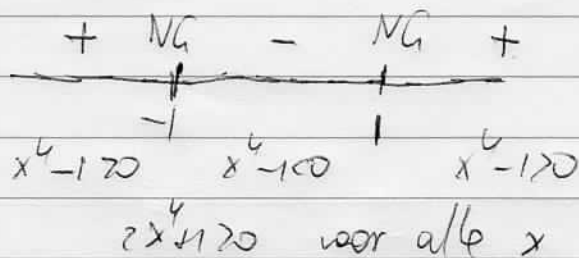 + NG - NG +
-1 1
x⁴-1>0 x⁴-1<0 x⁴-1>0
2x⁴+1>0 voor alle x